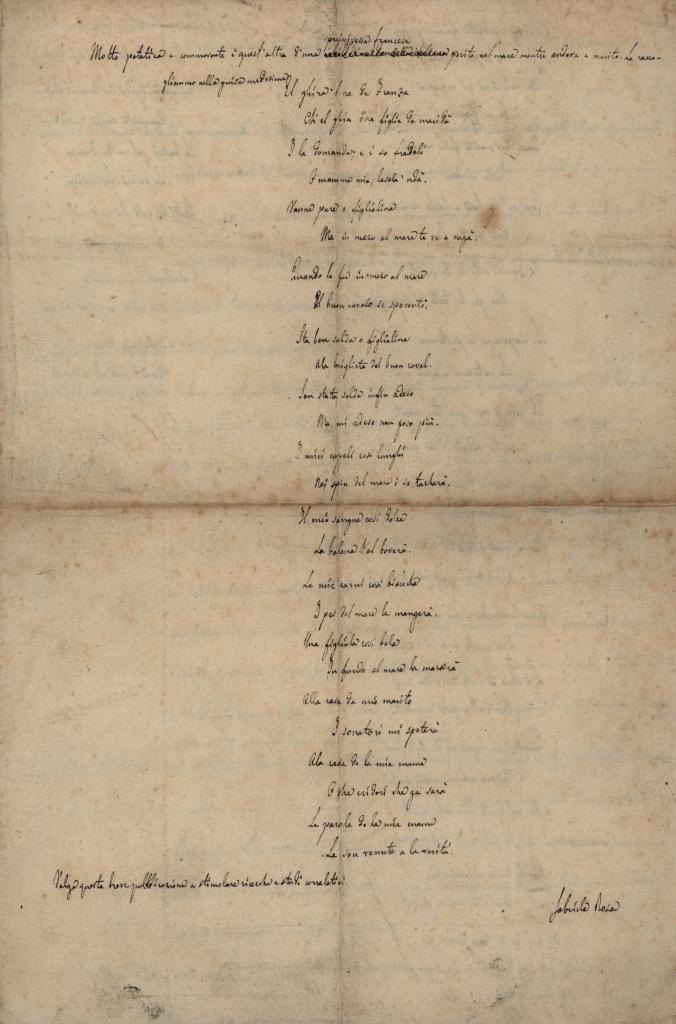 principessa francese
Molto patetica e commovente è quest'altra d'una perita nel mare mentre andava a marito. La racco-
gliemmo nella guisa medesima)
El ghira 'l re de Franza
Ch'el ghia öna figlia da maridà
I la domanda: e i so fradeli
O mamma mia, lasela 'ndà.
Vanne pure o figliolina
Ma in mezo al mare te ve a negà.
Quando la fu in mezo al mare
El buon cavalo se spaventò.
Sta ben salda o figliolina
Ala briglieta del buon caval.
Son stata salda infin adeso
Ma mi adeso non poso più.
I miei capeli così lunghi
Nei spin del mare i se tacherà.
Il mio sangue così dolce
La balena l'al boverà.
Le mie carni così bianche
I pes del mare le mangerà.
Una figliola così bela
In fondo al mare la marsirà
Alla casa de mio marito
I sonatori mi speterà
Ala casa de la mia mama
O che cridori che ga sarà
Le parole de la mia mama
Le son venute a la verità.
Valga questa breve pubblicazione a stimolare ricerche e studi correlativi.
Gabriele Rosa